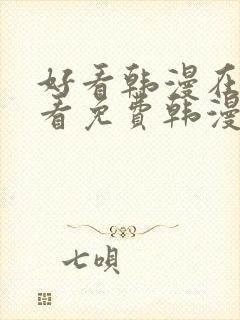 好看韩漫在
看免费韩漫
七唄